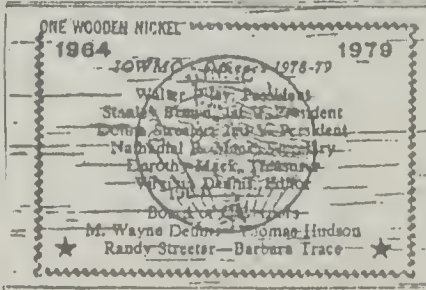 ONE WOODEN NICKEL
1964 1979
IOWMC Officers 1978-79
Walter President
Stanley 1st V. President
Donna Streeter 2nd V. President
Nathaniel
Dorothy Mack, Treasurer
Virginia Dennis, Editor
Board of
M. Wayne Dennis Thomas Hudson
Randy Streeter—Barbara Trace